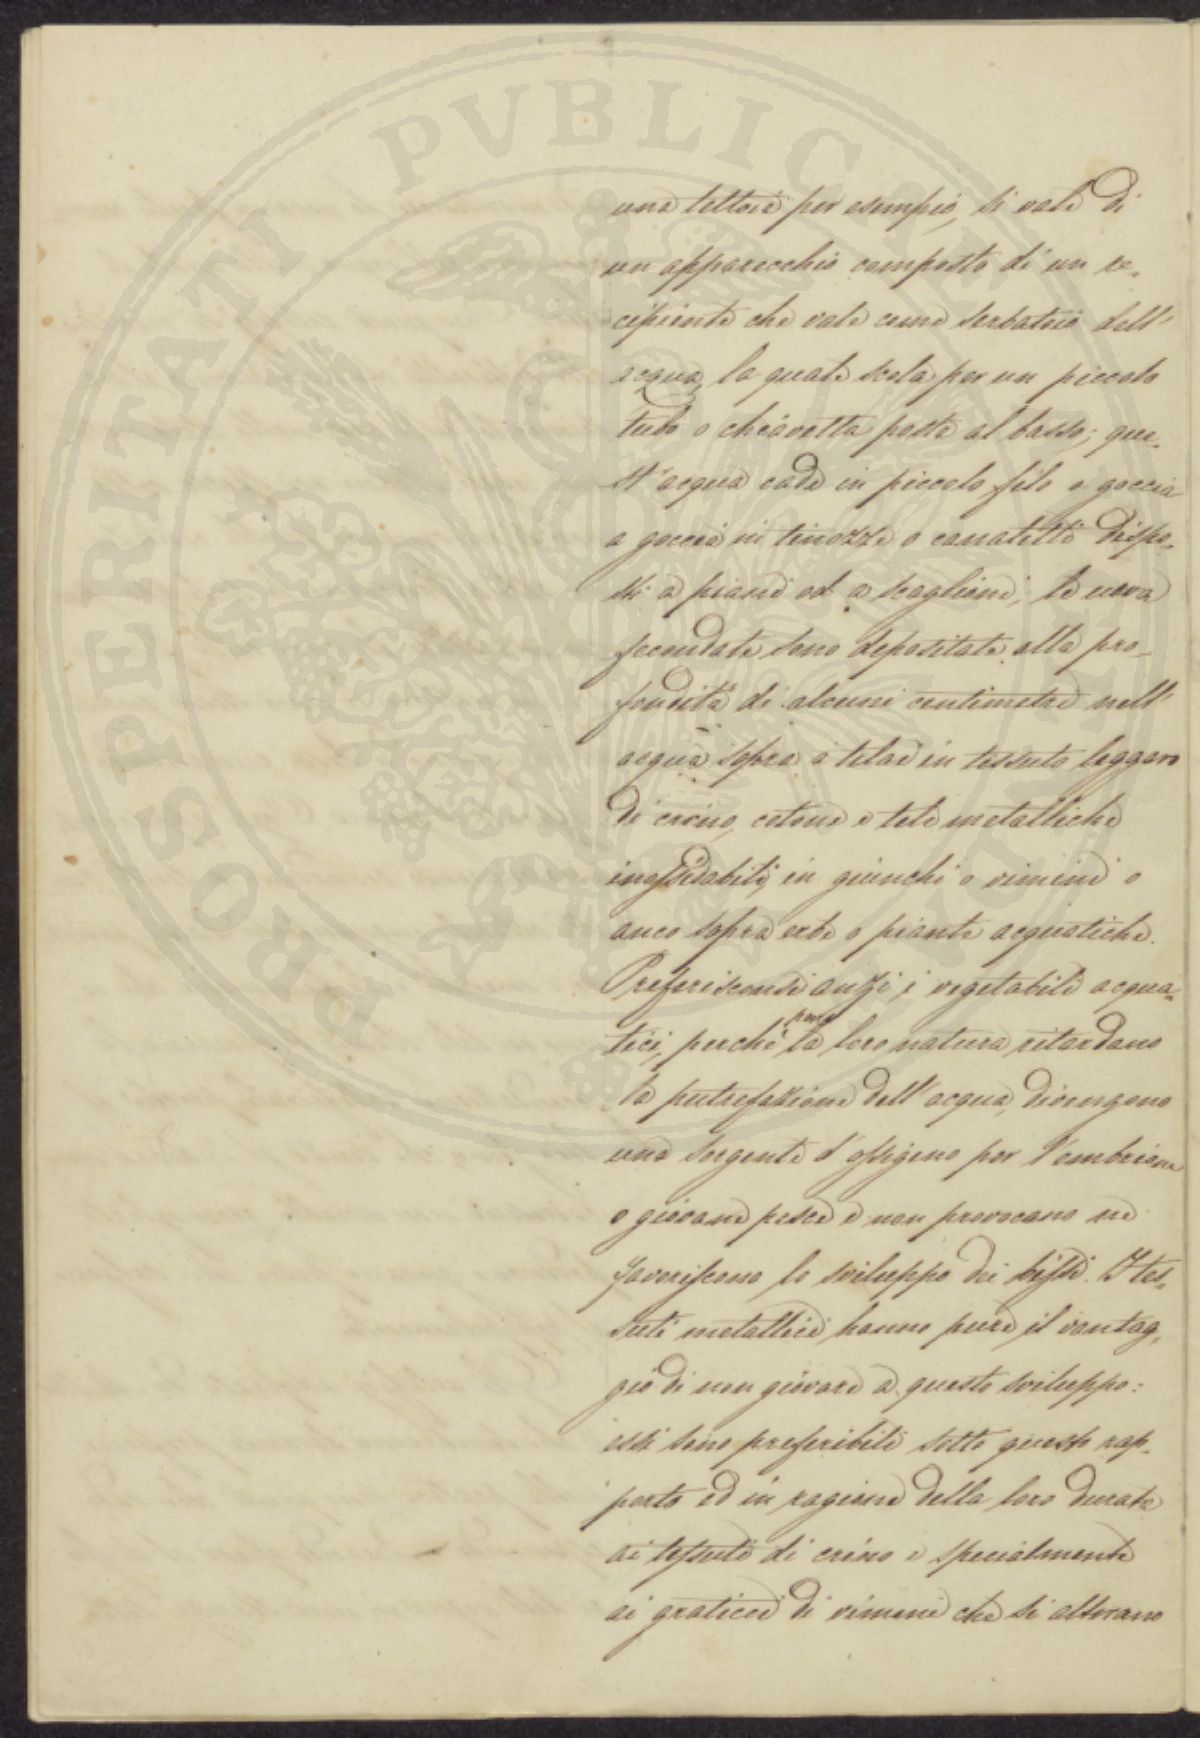 PROSPERITATI PVBLICAE
una tettoia per esempio, si vale di
un apparecchio composto di un re-
cipiente che vale come serbatoio dell'
acqua, la quale scola per un piccolo
tubo o chiavetta posta al basso; que-
st'acqua cade in piccolo filo o goccia
a goccia in tinozze o canaletti dispo-
sti a piani od a scaglioni; le uova
fecondate sono depositate alla pro-
fondità di alcuni centimetri nell'
acqua sopra a telai in tessuto leggero
di crino, cotone o tele metalliche
inossidabili, in giunchi o vimini o
anco sopra erbe o piante acquatiche.
Preferisconsi anzi i vegetabili acqua-
tici, perchè per la loro natura ritardano
la putrefazione dell'acqua, divengono
una sorgente d'ossigeno per l'embrione
o giovane pesce e non provocano nè
favoriscono lo sviluppo dei bissi. I tes-
suti metallici hanno pure il vantag-
gio di non giovare a questo sviluppo:
essi sono preferibili sotto questo rap-
porto ed in ragione della loro durata
ai tessuti di crino e specialmente
ai graticci di vimini che si alterano